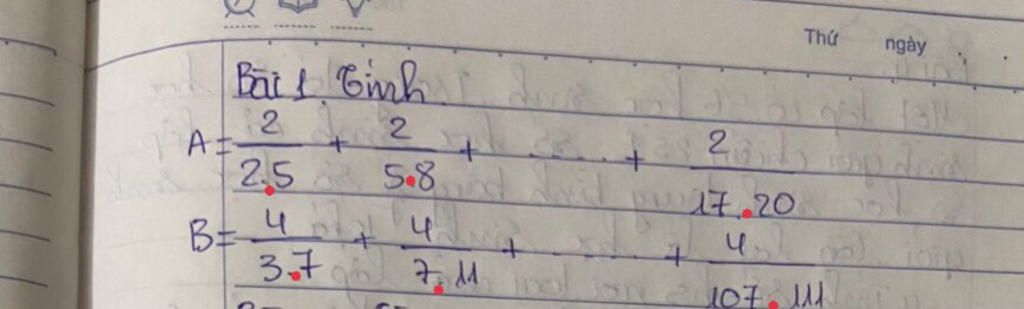 Thứ ngày
Bài 1. Tính
A = 2/2.5 + 2/5.8 + ..... + 2/17.20
B = 4/3.7 + 4/7.11 + ..... + 4/107.111